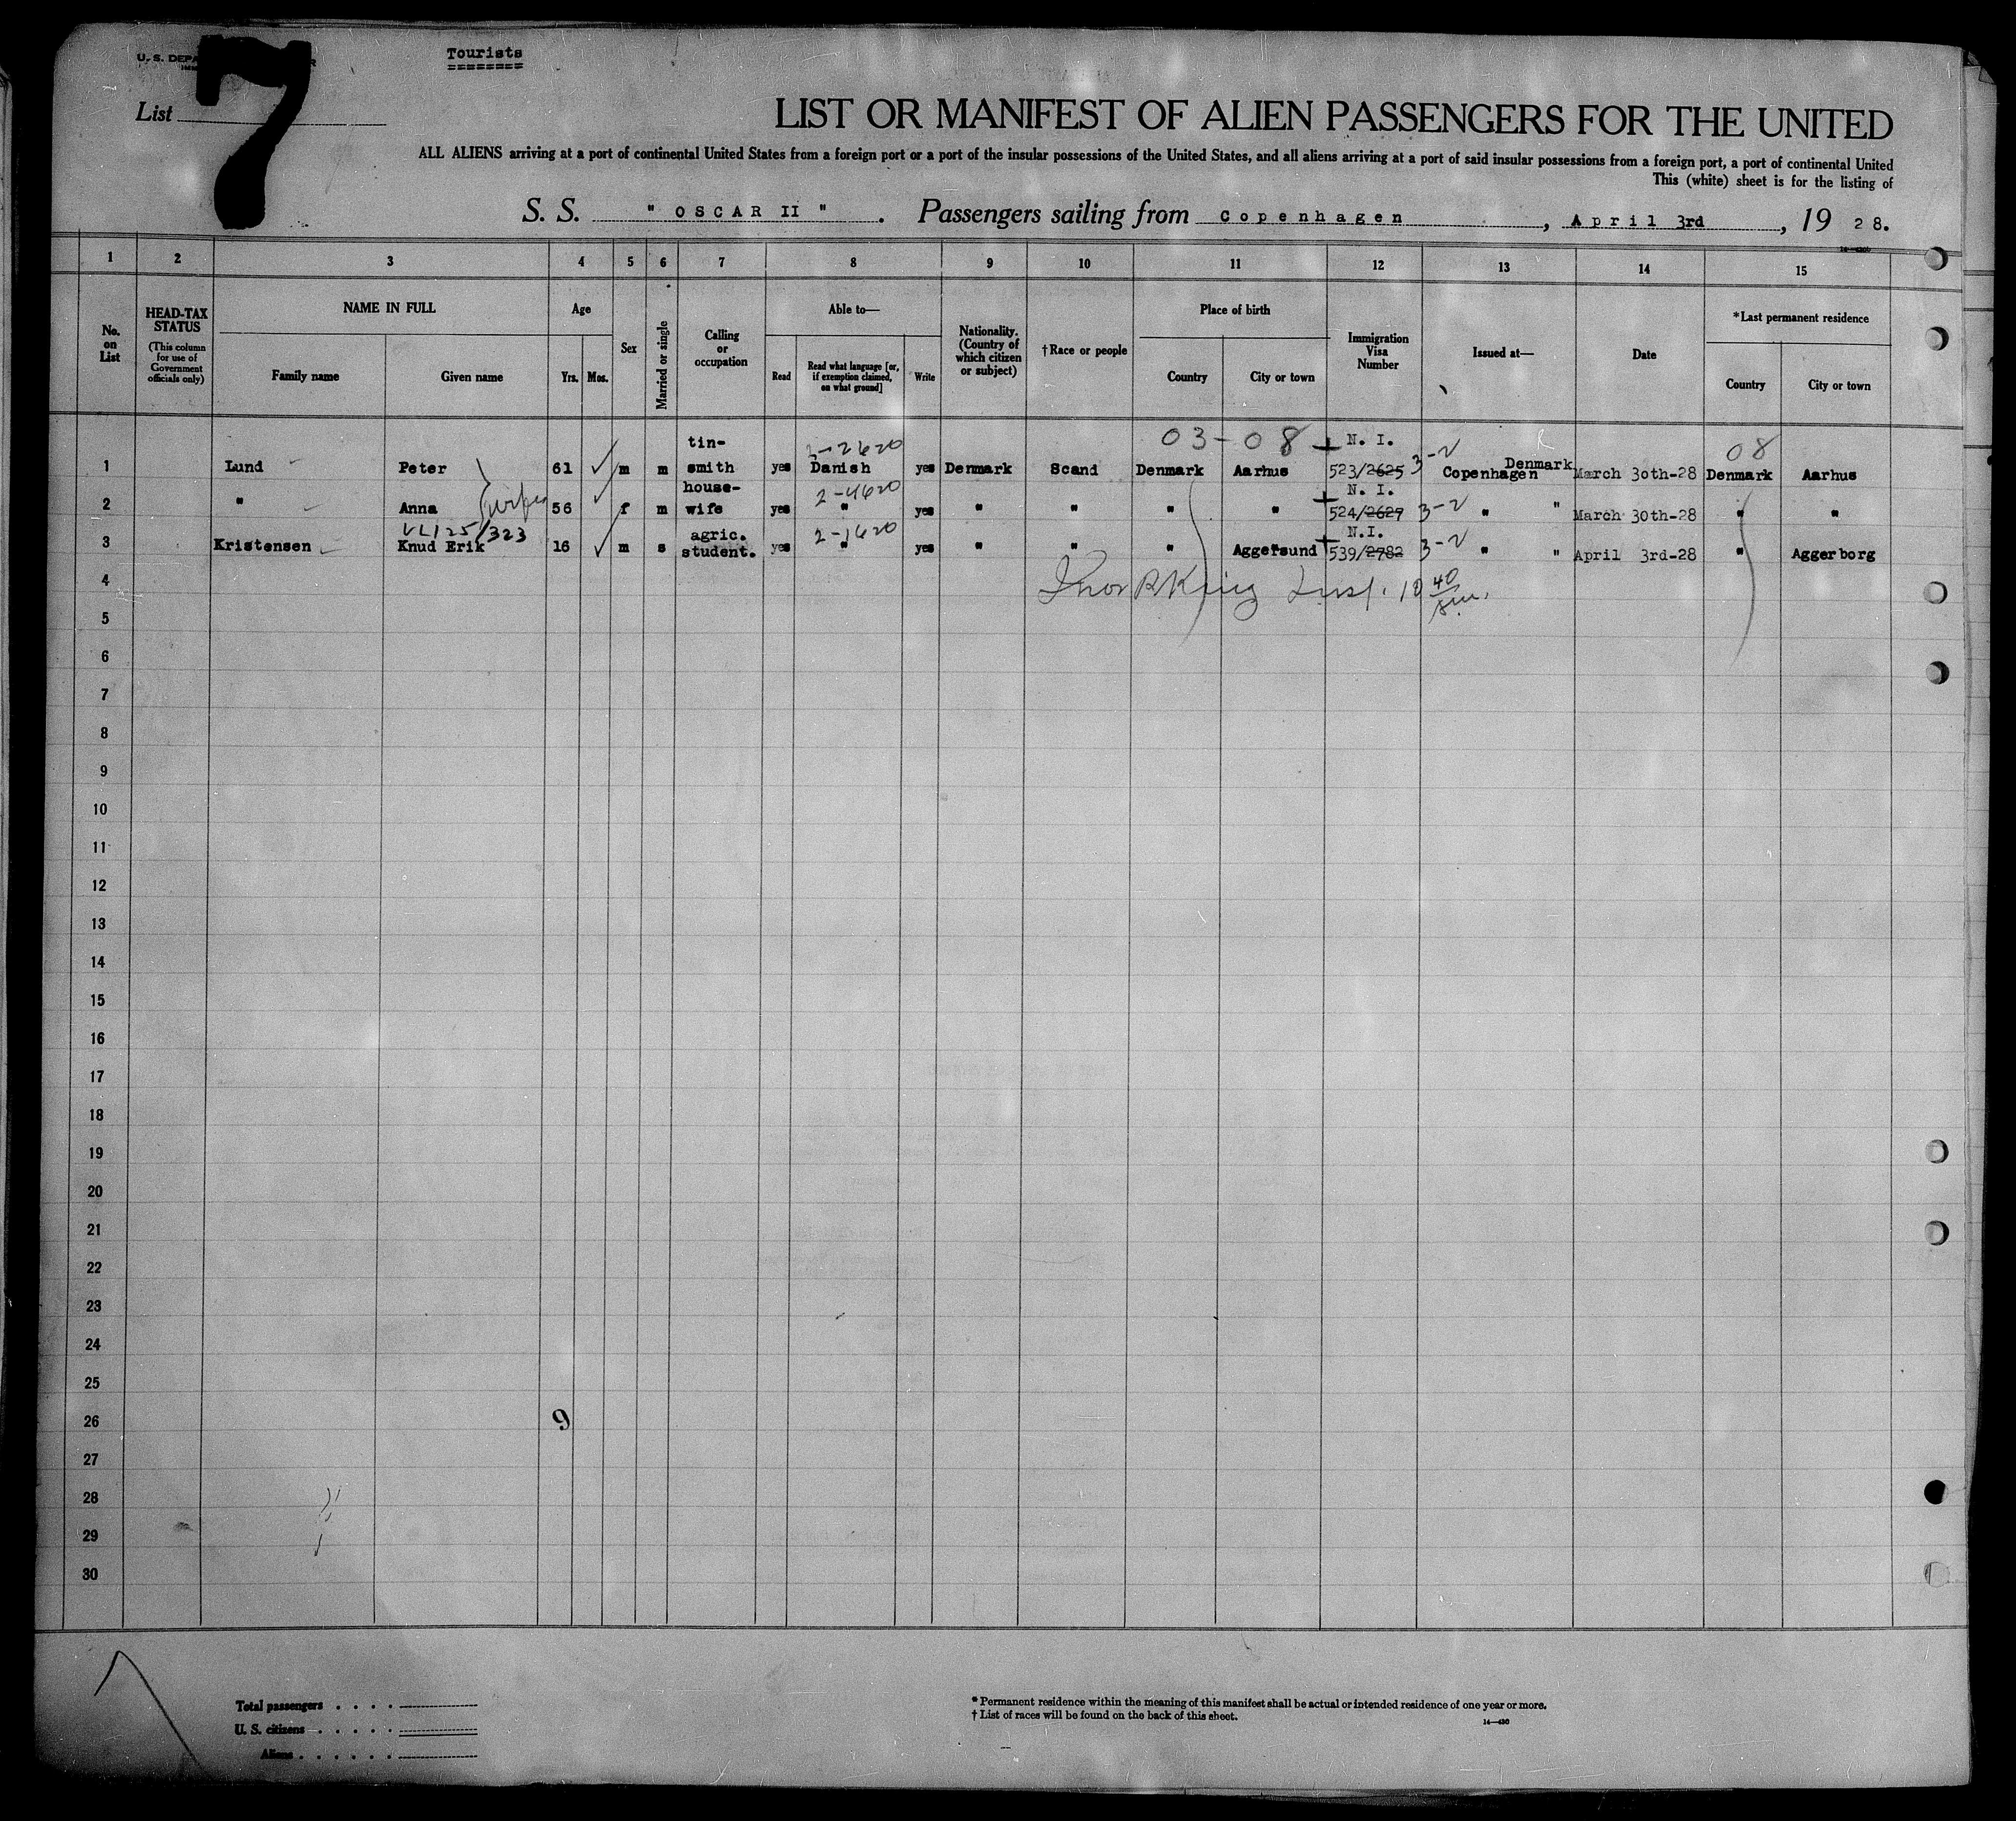 Tourists
U. S. DEPA
7
List
LIST OR MANIFEST OF ALIEN PASSENGERS FOR THE UNITED
ALL ALIENS arriving at a port of continental United States from a foreign port or a port of the insular possessions of the United States, and all aliens arriving at a port of said insular possessions from a foreign port, a port of continental United
This (white) sheet is for the listing of
S. S. " OSCAR II " . Passengers sailing from Copenhagen , April 3rd , 19 28.
1 2 3 4 5 6 7 8 9 10 11 12 13 14 15
No. on List
HEAD-TAX STATUS
(This column for use of Government officials only)
NAME IN FULL
Family name Given name
Age
Yrs. Mos.
Sex
Married or single
Calling or occupation
Able to—
Read
Read what language [or, if exemption claimed, on what ground]
Write
Nationality. (Country of which citizen or subject)
†Race or people
Place of birth
Country City or town
Immigration Visa Number
Issued at—
Date
*Last permanent residence
Country City or town
03-08 N. I. 08
1 Lund Peter 61 m m tin-smith yes Danish yes Denmark Scand Denmark Aarhus 523/2625 3-2 Copenhagen Denmark March 30th-28 Denmark Aarhus
2-4620 N. I.
2 " Anna 56 f m house-wife yes " yes " " " " 524/2627 3-2 " " March 30th-28 " "
2-1620 N.I.
3 Kristensen Knud Erik 16 m s agric. student. yes " yes " " " Aggersund 539/2782 3-2 " " April 3rd-28 " Aggerborg
4 King Insp. 10 40
5
6
7
8
9
10
11
12
13
14
15
16
17
18
19
20
21
22
23
24
25
26 9
27
28
29
30
Total passengers . . . .
U. S. citizens . . . . .
Aliens . . . . . .
* Permanent residence within the meaning of this manifest shall be actual or intended residence of one year or more.
† List of races will be found on the back of this sheet.
14—430